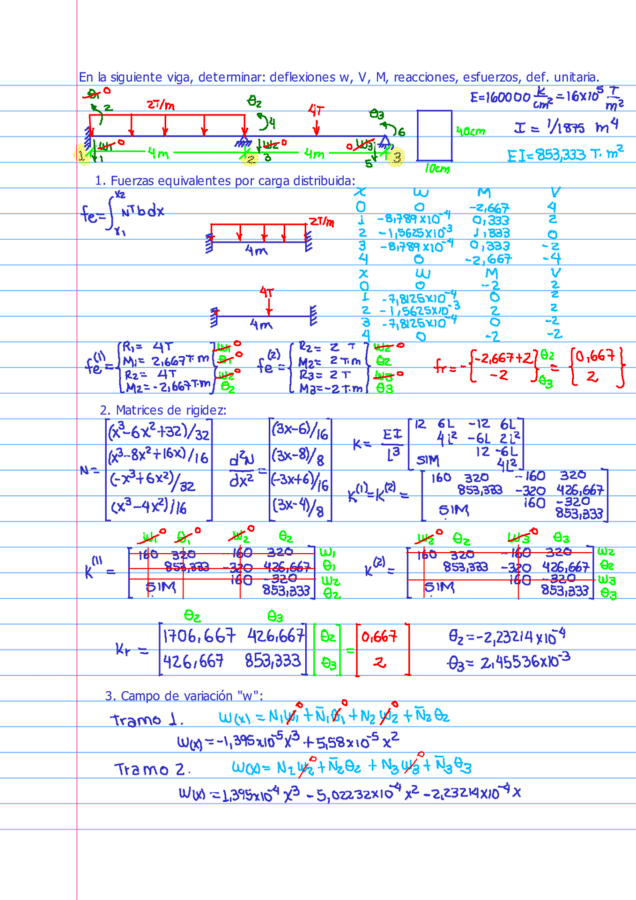 En la siguiente viga, determinar: deflexiones w, V, M, reacciones, esfuerzos, def. unitaria.
E=160000 K/cm² = 16x10⁵ T/m²
I = 1/1875 m⁴
EI=853,333 T.m²
θ₁ 0 2 2T/m θ₂ 4 4T θ₃ 6
1 1 w₁ 0 4m 2 3 4m w₃ 0 5 3
40cm
10cm
1. Fuerzas equivalentes por carga distribuida:
fe = ∫ x₁ x₂ Nᵀb dx
2T/m
4m
4T
4m
X W M V
0 0 -2,667 4
1 -8,789x10⁻⁴ 0,333 2
2 -1,5625x10⁻³ 1,333 0
3 -8,789x10⁻⁴ 0,333 -2
4 0 -2,667 -4
X W M V
0 0 -2 2
1 -7,8125x10⁻⁴ 0 2
2 -1,5625x10⁻³ 2 2
3 -7,8125x10⁻⁴ 0 -2
4 0 -2 -2
fe⁽¹⁾ =
R₁= 4T w₁ 0
M₁= 2,667T.m θ₁ 0
R₂= 4T w₂ 0
M₂=-2,667T.m θ₂
fe⁽²⁾ =
R₂= 2 T w₂ 0
M₂= 2 T.m θ₂
R₃= 2 T w₃ 0
M₃=-2 T.m θ₃
fr = - {-2,667+2 -2} θ₂ θ₃ = {0,667 2}
2. Matrices de rigidez:
N =
(x³-6x²+32)/32
(x³-8x²+16x)/16
(-x³+6x²)/32
(x³-4x²)/16
d²N/dx² =
(3x-6)/16
(3x-8)/8
(-3x+6)/16
(3x-4)/8
K = EI/L³
12 6L -12 6L
4L² -6L 2L²
12 -6L
SIM 4L²
K⁽¹⁾=K⁽²⁾ =
160 320 -160 320
853,333 -320 426,667
160 -320
SIM 853,333
w₁ 0 θ₁ 0 w₂ 0 θ₂
K⁽¹⁾ =
160 320 -160 320 w₁
853,333 -320 426,667 θ₁
160 -320 w₂
SIM 853,333 θ₂
w₂ 0 θ₂ w₃ 0 θ₃
K⁽²⁾ =
160 320 -160 320 w₂
853,333 -320 426,667 θ₂
160 -320 w₃
SIM 853,333 θ₃
θ₂ θ₃
Kr =
1706,667 426,667 θ₂ = 0,667
426,667 853,333 θ₃ 2
θ₂=-2,23214x10⁻⁴
θ₃= 2,45536x10⁻³
3. Campo de variación "w":
Tramo 1. W(x) = N₁w₁ 0 + N̄₁θ₁ 0 + N₂ w₂ 0 + N̄₂ θ₂
W(x)=-1,395x10⁻⁵x³ + 5,58x10⁻⁵ x²
Tramo 2. W(x)= N₂ w₂ 0 + N̄₂θ₂ + N₃ w₃ 0 + N̄₃θ₃
W(x) =1,395x10⁻⁴ x³ - 5,02232x10⁻⁴ x² -2,23214x10⁻⁴x